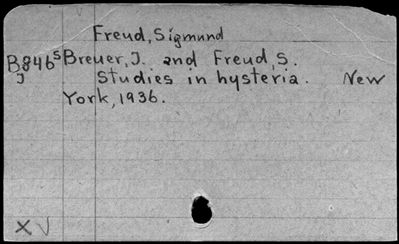 Freud, Sigmund
B846s Breuer, J. and Freud, S.
J Studies in hysteria. New
York, 1936.
X √